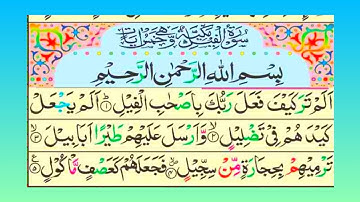 سُوْرَةُ الْفِيْلِ مَكِّيَّةٌ وَّهِيَ خَمْسُ اٰيَاتٍ
بِسْمِ اللّٰهِ الرَّحْمٰنِ الرَّحِيْمِ
اَلَمْ تَرَ كَيْفَ فَعَلَ رَبُّكَ بِاَصْحٰبِ الْفِيْلِ ۝۱ اَلَمْ يَجْعَلْ
كَيْدَهُمْ فِيْ تَضْلِيْلٍ ۝۲ وَّاَرْسَلَ عَلَيْهِمْ طَيْرًا اَبَابِيْلَ ۝۳
تَرْمِيْهِمْ بِحِجَارَةٍ مِّنْ سِجِّيْلٍ ۝۴ فَجَعَلَهُمْ كَعَصْفٍ مَّاْكُوْلٍ ۝۵